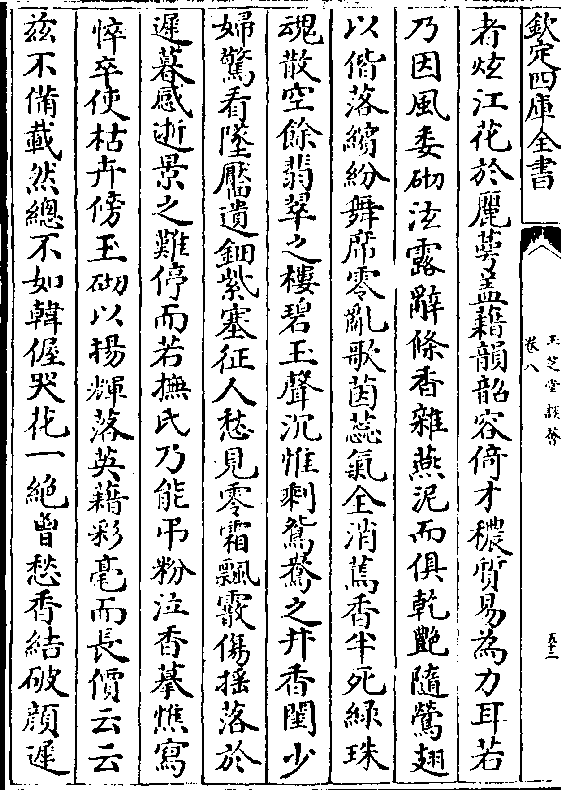 欽定四庫全書
玉芝堂談薈
卷八
五十二
者炫江花於麗蕚盖藉韻韶容倚才穠質易為力耳若
乃因風委砌泫露辭條香雜燕泥而俱乾艷隨鶯翅
以偕落繽紛舞席零亂歌茵蕊氣全消蔫香半死綠珠
魂散空餘翡翠之樓碧玉聲沉惟剩鴛鴦之井香閨少
婦驚看墜靨遺鈿紫塞征人愁見零霜飄霰傷揺落於
遲暮感逝景之難停而若撫氏乃能弔粉泣香摹憔寫
悴卒使枯卉傍玉砌以揚輝落英藉彩毫而長價云云
兹不備載然總不如韓偓哭花一絶曾愁香結破顔遲